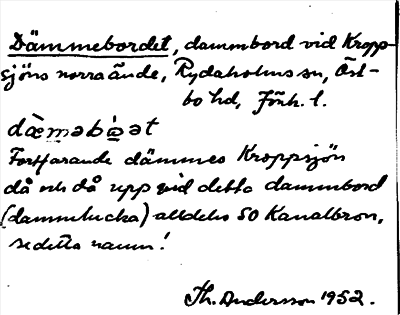 Dämmebordet, dammbord vid Kropp-
sjöns norra ände, Rydaholms sn, Öst-
bo hd, Jönk. l.
dæ̀mǝbo̱ǝt
Fortfarande dämmes Kroppsjön
då och då upp vid detta dammbord
(dammlucka) alldeles SO Kanalbron,
se detta namn!
Th. Andersson 1952.